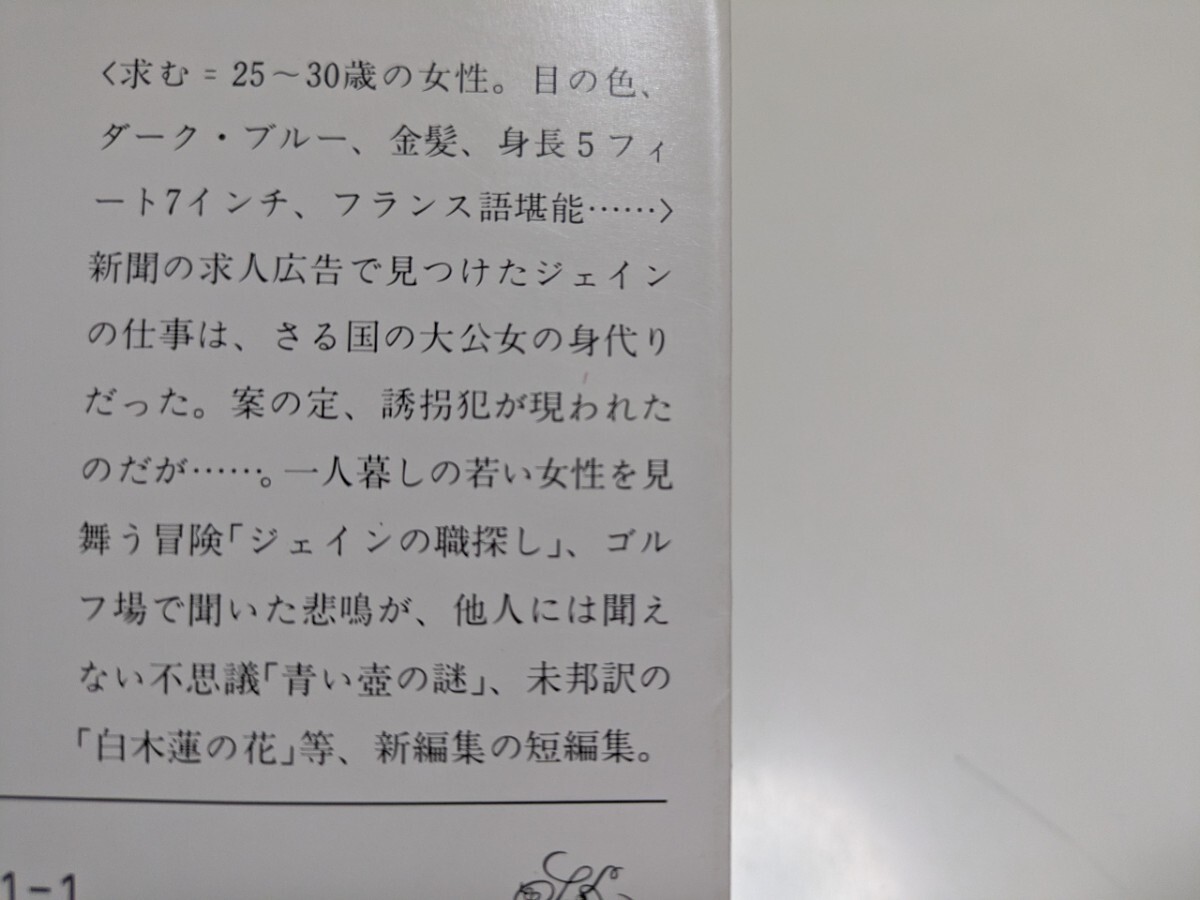 〈求む＝25〜30歳の女性。目の色、
ダーク・ブルー、金髪、身長5フィ
ート7インチ、フランス語堪能……〉
新聞の求人広告で見つけたジェイン
の仕事は、さる国の大公女の身代り
だった。案の定、誘拐犯が現われた
のだが……。一人暮しの若い女性を見
舞う冒険「ジェインの職探し」、ゴル
フ場で聞いた悲鳴が、他人には聞え
ない不思議「青い壺の謎」、未邦訳の
「白木蓮の花」等、新編集の短編集。
1-1